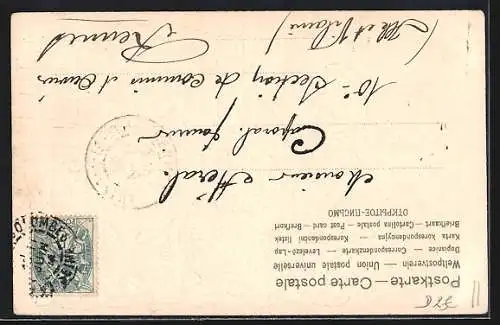 Postkarte — Carte postale
Weltpostverein — Union postale universelle
Dopisnice — Correspondenzkarte — Levelezö-Lap
Karta korespondencyjna — Korespondenční lístek
Briefkaart — Cartolina postale — Post card — Brefkort
ОТКРЫТОЕ ПИСЬМО
Monsieur
Caporal fourrier
10e Section de Commis et Ouvriers
Rennes
(Ille et Vilaine)